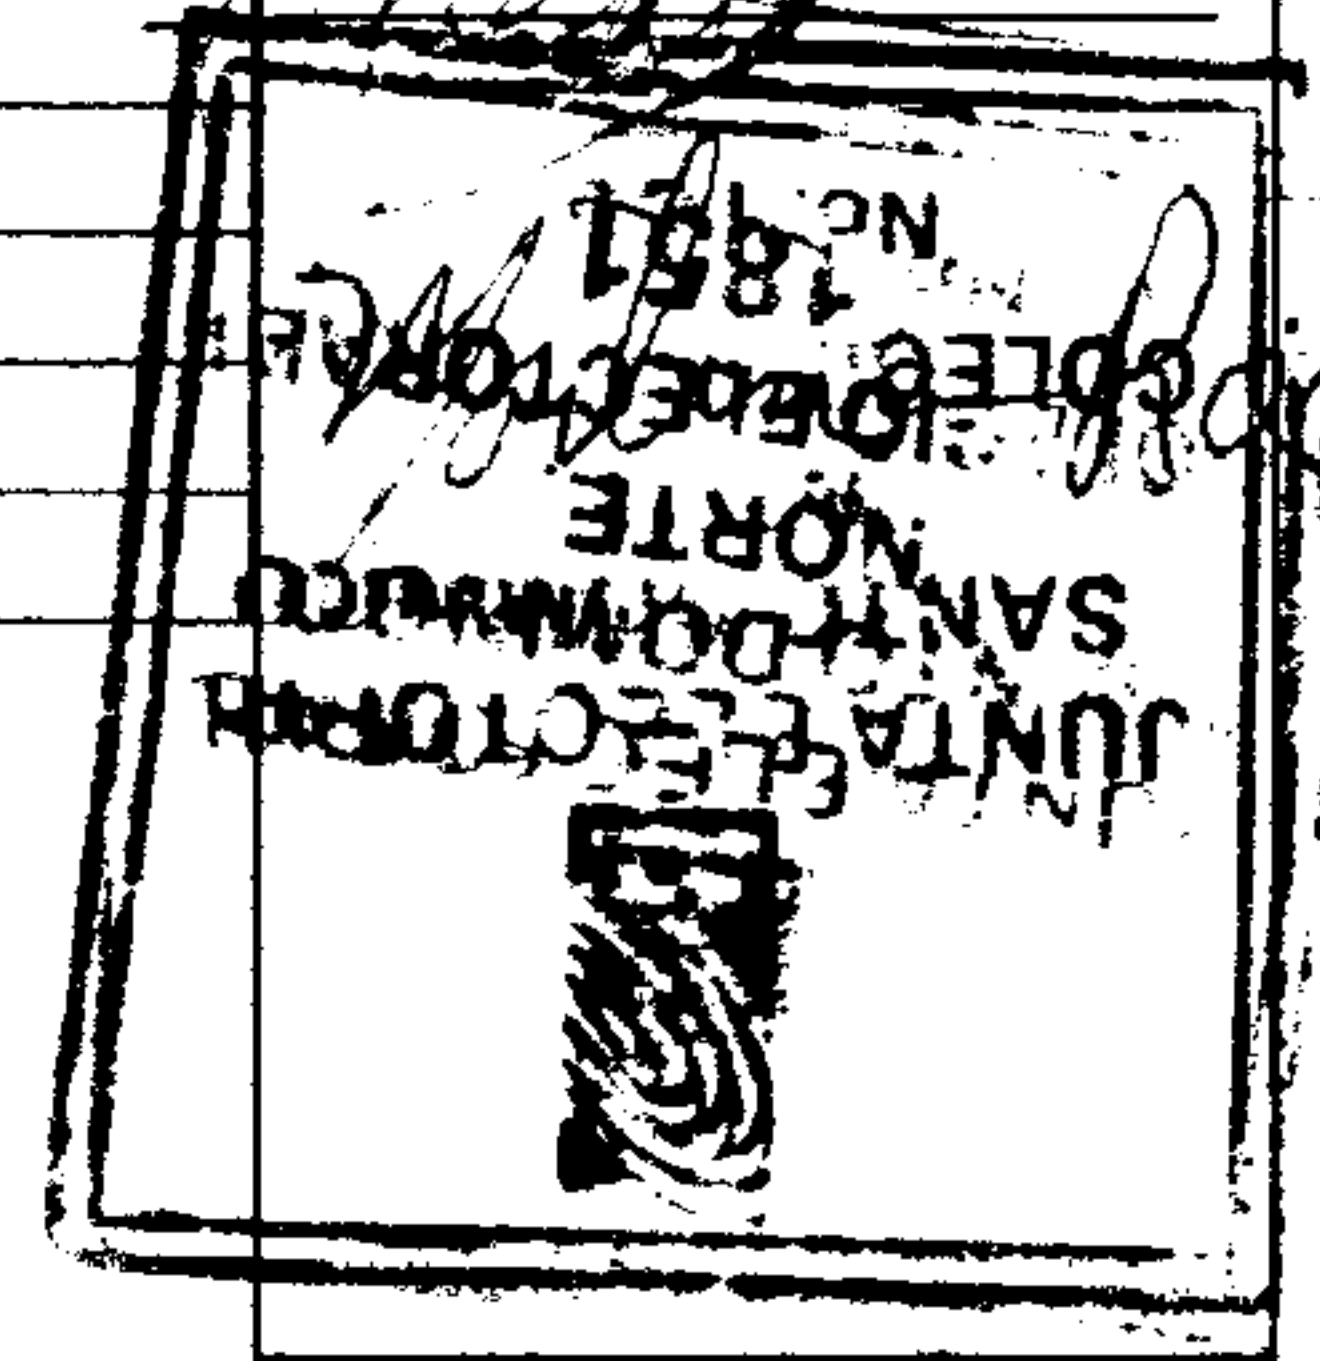 JUNTA ELECTORAL
SANTO DOMINGO
NORTE
COLEGIO ELECTORAL
No.
1851